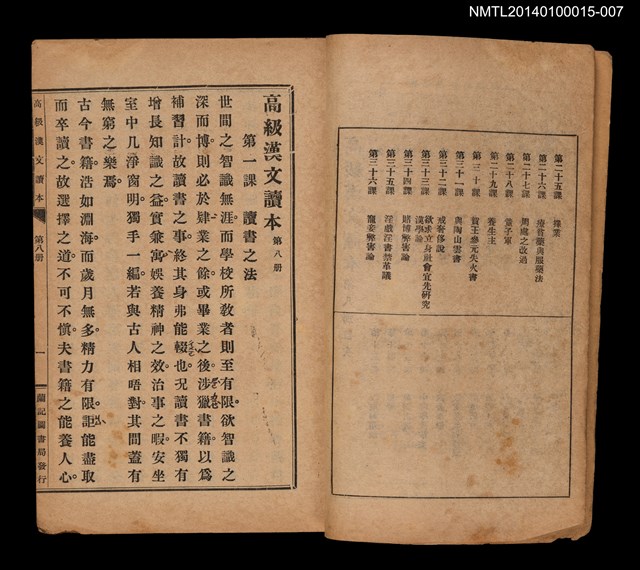 NMTL20140100015-007
第二十五課 擇業
第二十六課 療貧藥與服藥法
第二十七課 周處之改過
第二十八課 童子軍
第二十九課 養生主
第三十課 賀王參元失火書
第三十一課 與陶山雲書
第三十二課 戒奢侈說
第三十三課 欲求立身社會宜先研究漢學論
第三十四課 賭博弊害論
第三十五課 淫戲淫書禁革議
第三十六課 寵妾弊害論
高級漢文讀本 第八册
第一課 讀書之法
世間之智識無涯而學校所敎者則至有限。欲智識之
深而博則必於肄業之餘或畢業之後涉獵書籍以爲
補習計故讀書之事終其身弗能輟也況讀書不獨有
增長知識之益實兼寓娛養精神之效治事之暇安坐
室中几淨窗明獨手一編若與古人相晤對。其間蓋有
無窮之樂焉。
古今書籍浩如淵海而歲月無多精力有限。詎能盡取
而卒讀之故選擇之道不可不愼。夫書籍之能養人心
高級漢文讀本 第八册 一 蘭記圖書局發行